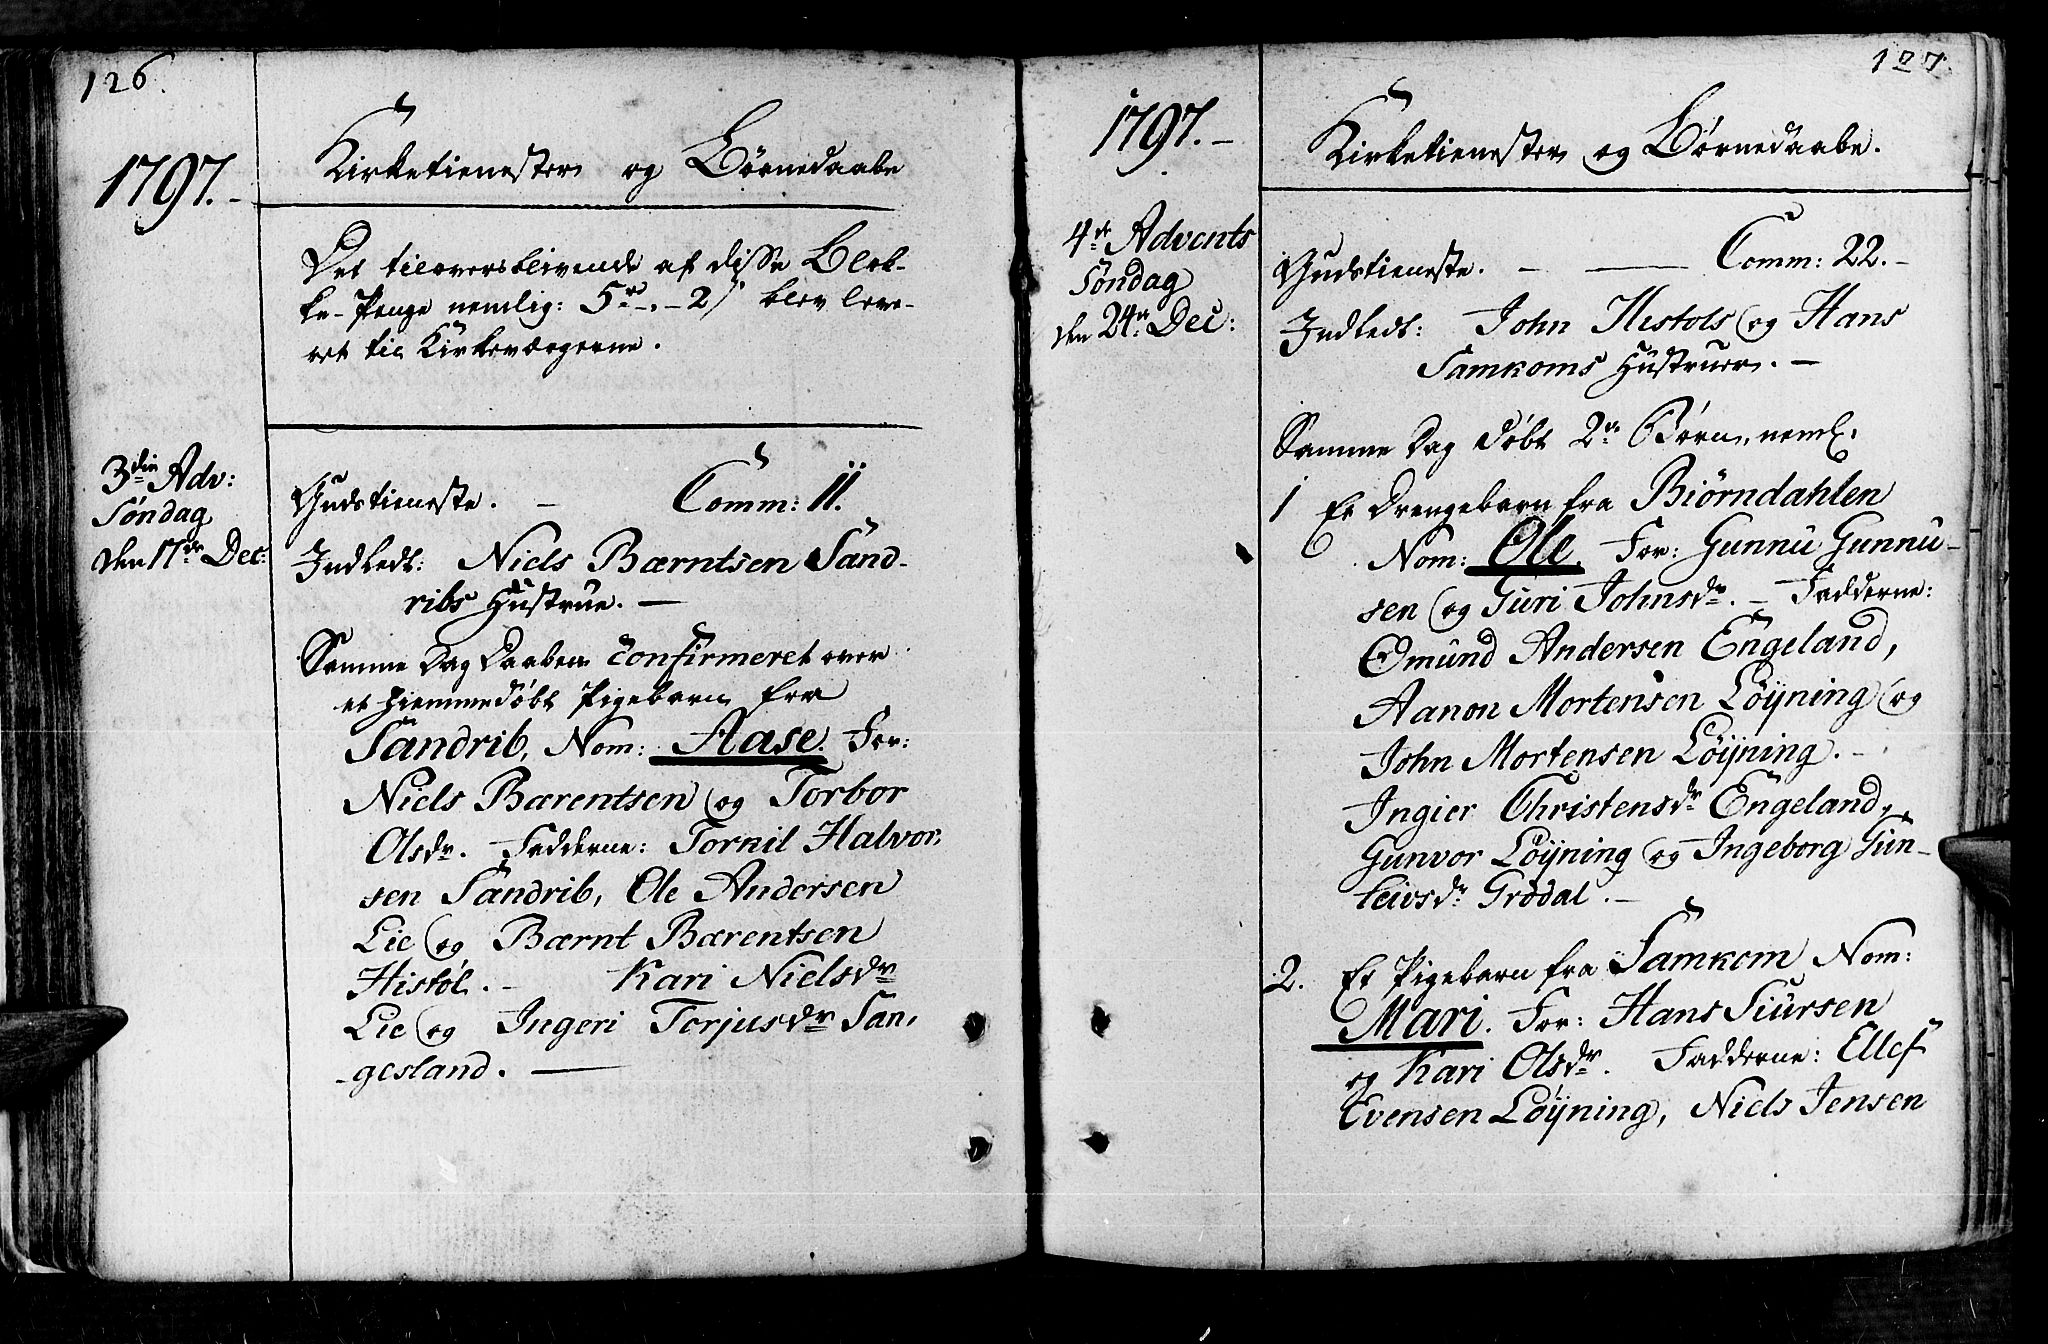 126.
1797.-
Kirketienester og Börnedaabe
Det tiloversblivende af disse Blok-
ke-Penge nemlig: 5rd.-2ß blev leve-
ret til Kirkeværgerne.
3die Adv:
Söndag
den 17de Dec:
Gudstieneste. - Comm: 11.
Indledt: Niels Bærntsen Sand-
ribs Hustrue. -
Samme Dag Daaben confirmeret over
et hiemmedöbt Pigebarn fra
Sandrib, Nom: Aase. For:
Niels Bærentsen og Torbor
Olsdr. Fadderne: Torkil Halvor-
sen Sandrib, Ole Andersen
Lie og Bærnt Bærentsen
Histöl. - Kari Nielsdr
Lie og Ingeri Torjusdr San-
gesland. -
127.
1797.-
Kirketienester og Börnedaabe.
4de Advents
Söndag
den 24de Dec:
Gudstieneste. - - Comm: 22.-
Indledt: John Hestols og Hans
Samkoms Hustruer. -
Samme Dag döbt 2de Börn, neml.
1 Et Drengebarn fra Biörndahlen
Nom: Ole. For: Gunnu Gunnu-
sen og Guri Johnsdr. - Fadderne:
Omund Andersen Engeland,
Aanon Mortensen Löyning og
John Mortensen Löyning. -
Ingier Christensdr Engeland,
Gunvor Löyning og Ingeborg Gun-
leivsdr Grödal. -
2. Et Pigebarn fra Samkom Nom:
Mari. For: Hans Siursen
og Kari Olsdr. Fadderne: Ellef
Evensen Löyning, Niels Jensen